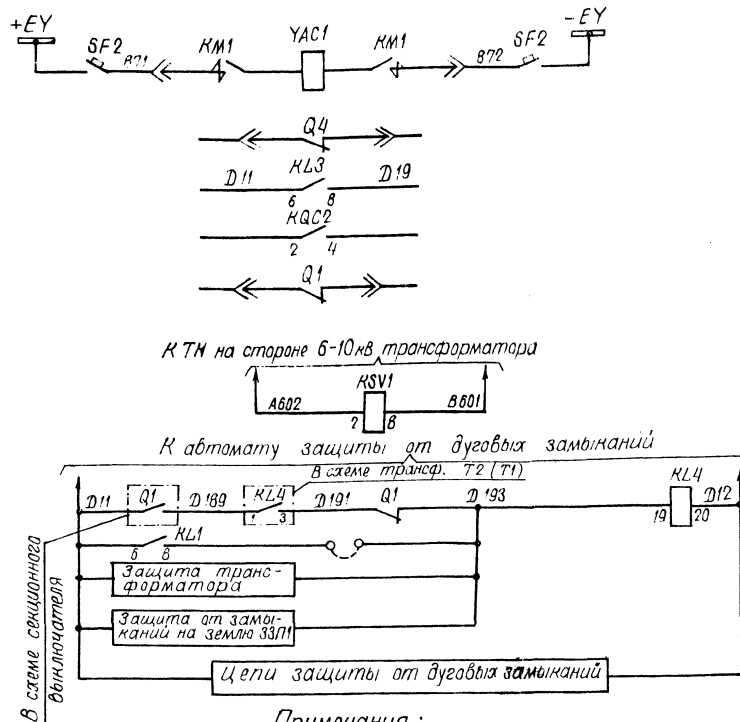 +EY
SF2
871
KM1
YAC1
KM1
872
SF2
-EY
Q4
D11
KL3
D19
6 8
KQC2
2 4
Q1
К ТН на стороне 6-10кВ трансформатора
A602
KSV1
B601
7 8
К автомату защиты от дуговых замыканий
В схеме трансф. T2 (T1)
D11
Q1
D189
KL4
D191
Q1
D193
KL4
D12
1 3
19 20
KL1
6 8
Защита транс-
форматора
Защита от замы-
каний на землю ЗЗП1
Цепи защиты от дуговых замыканий
В схеме секционного
выключателя
Примечания: